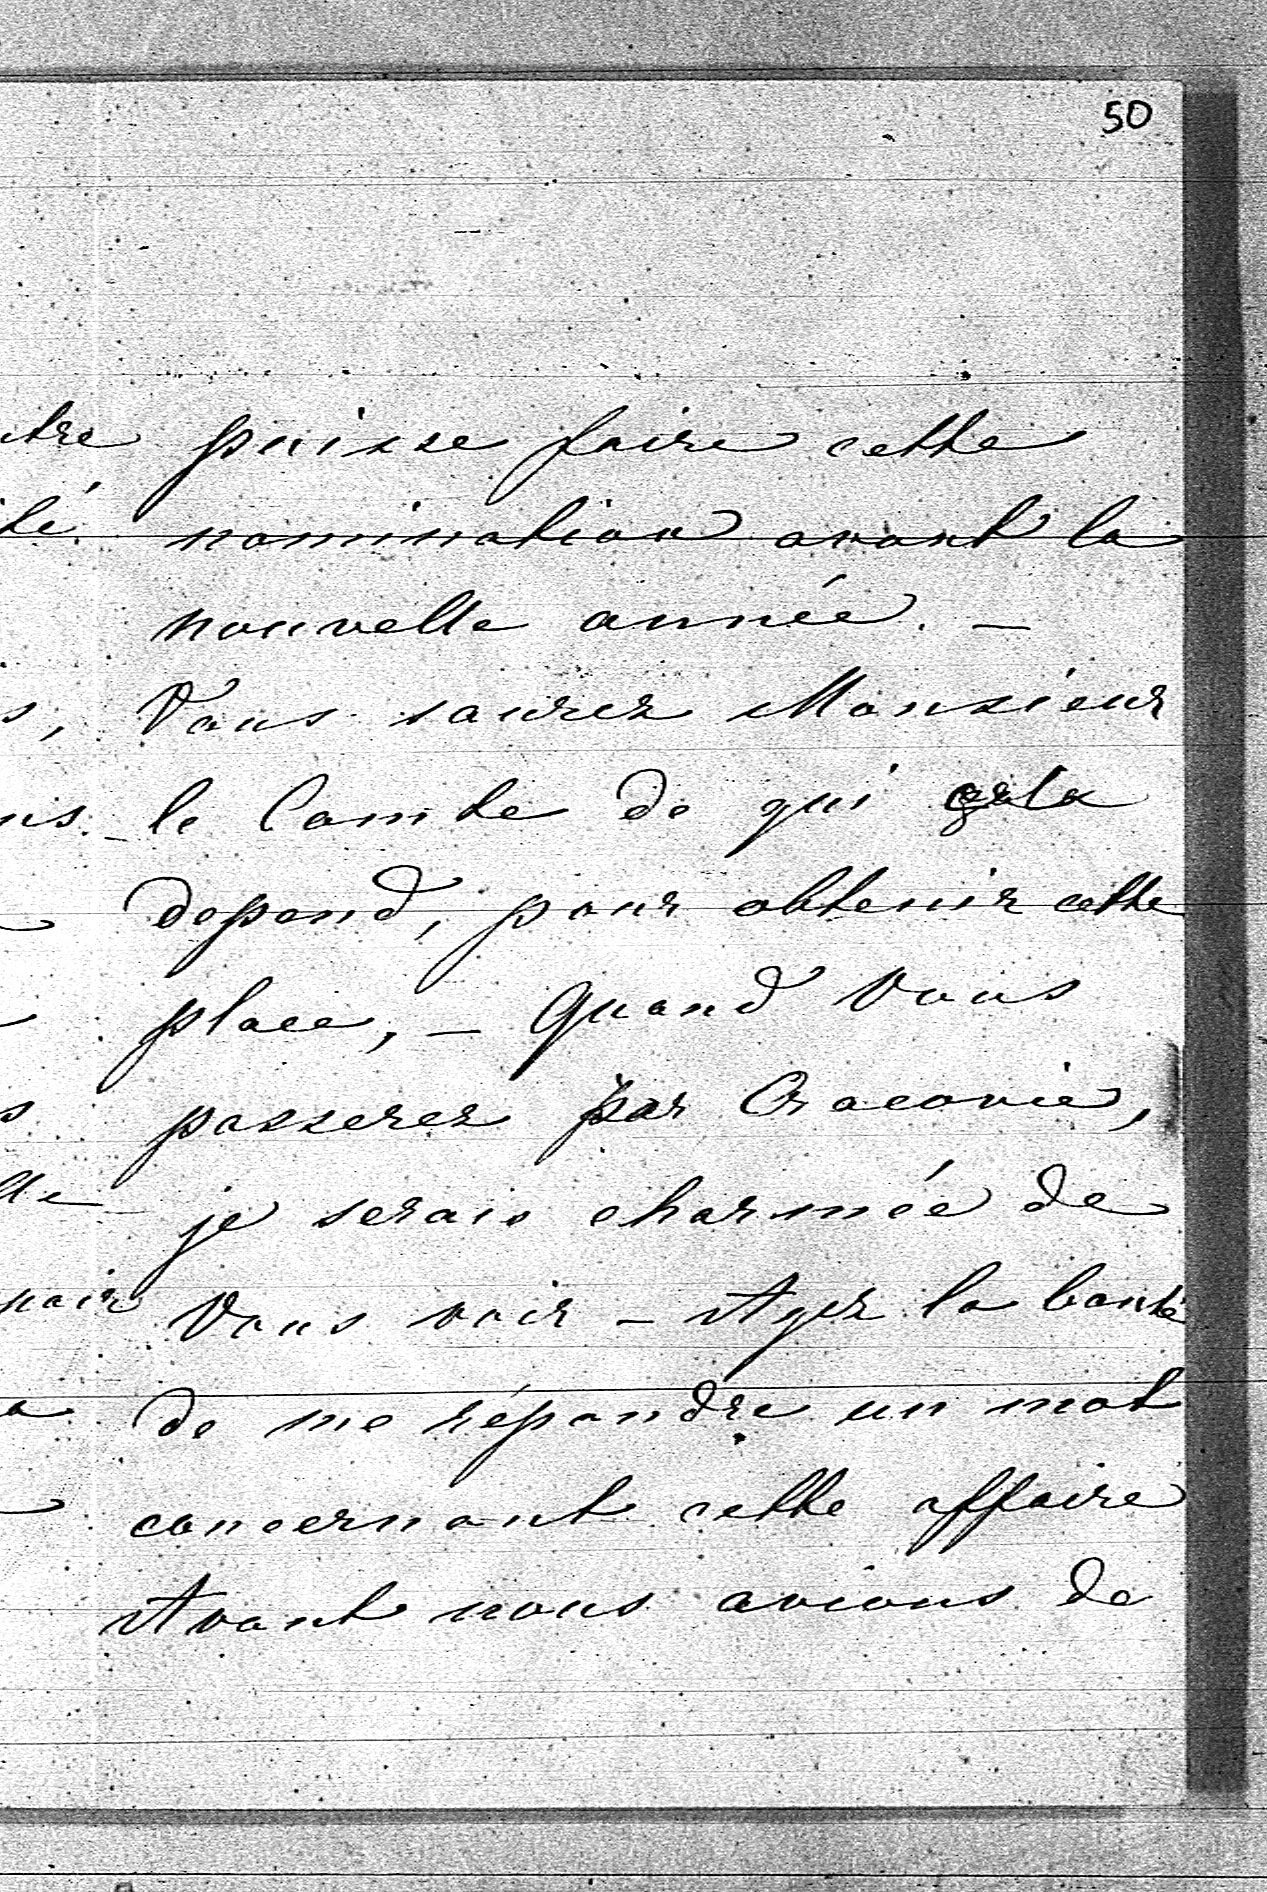 50
puisse faire cette
nomination avant la
nouvelle année. –
Vous saurez Monsieur
le Comte de qui cela
dépend, pour obtenir cette
place, – Quand Vous
passerez par Cracovie,
je serais charmée de
Vous voir – Ayez la bonté
de me répondre un mot
concernant cette affaire
Avant nous avions de